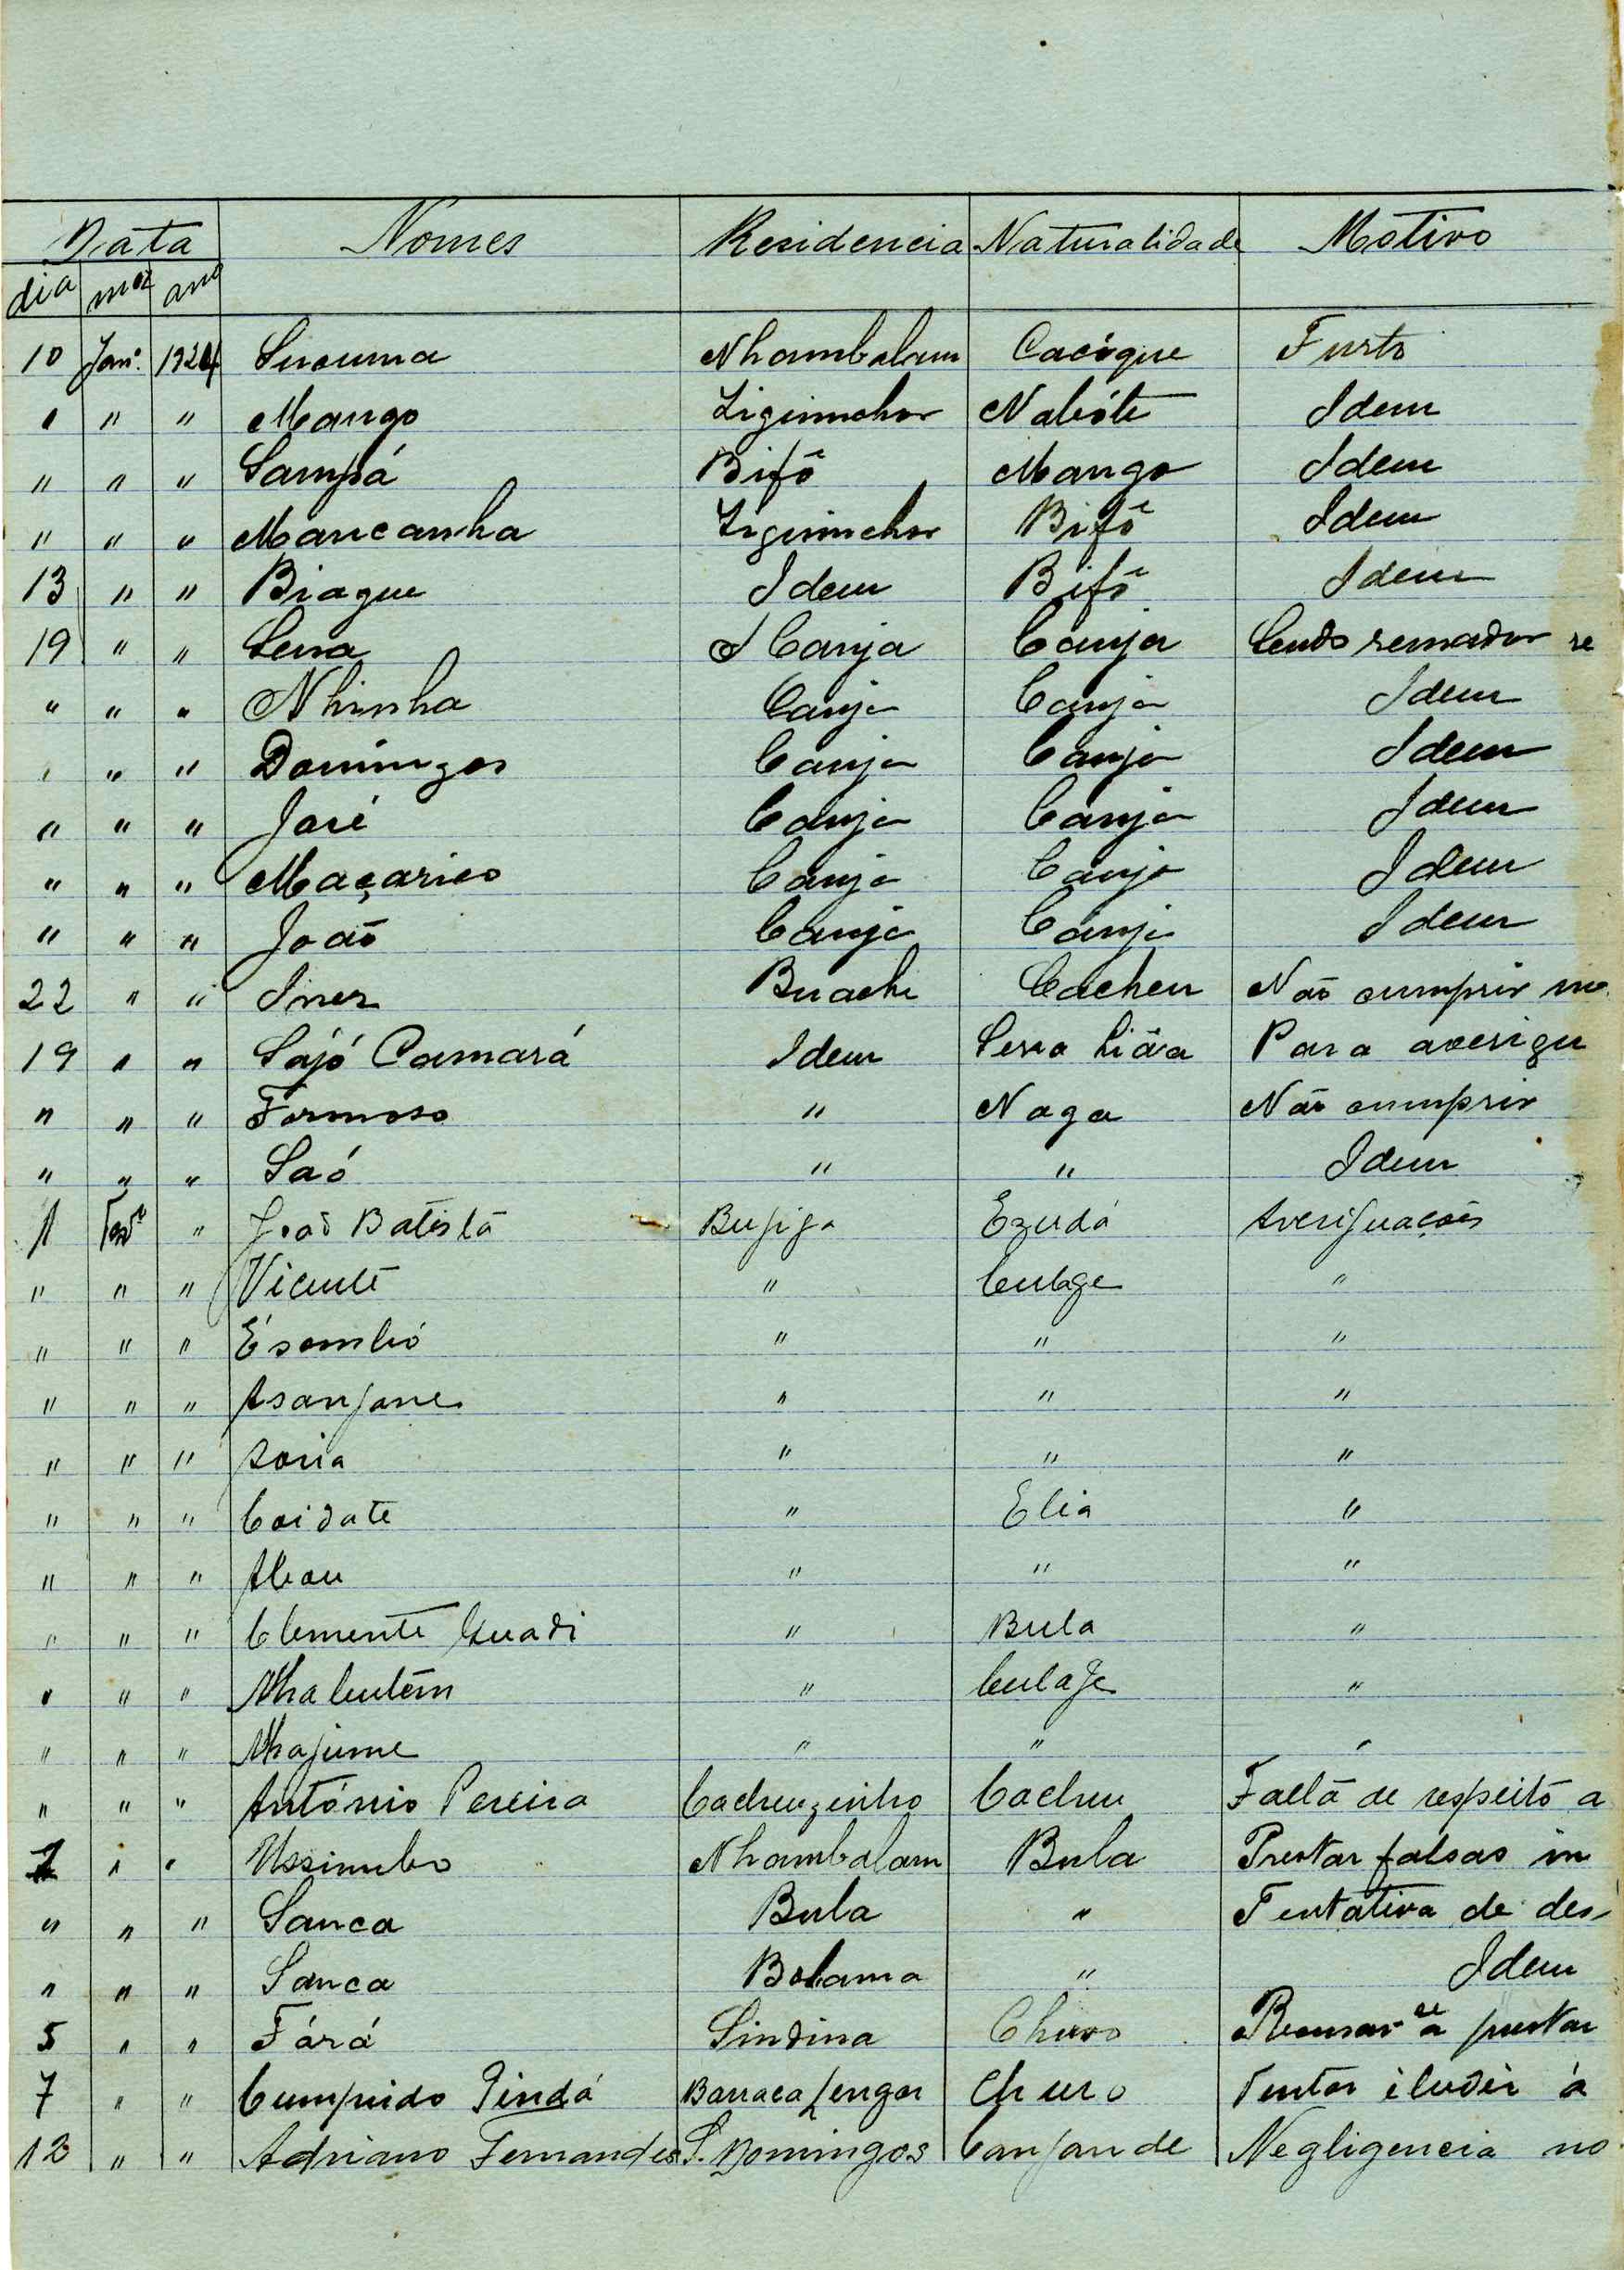 Data Nomes Residencia Naturalidade Motivo
dia mez ano
10 Janº. 1924 Sucuma Nhambalam Cacógue Furto
" " " Mango Ziguinchor Nabóte Idem
" " " Sampá Bifô Mango Idem
" " " Mancanha Ziguinchor Bifô Idem
13 " " Biague Idem Bifô Idem
19 " " Sena Canja Canja Sendo remador se
" " " Nhinha Canja Canja Idem
" " " Domingos Canja Canja Idem
" " " José Canja Canja Idem
" " " Maçarico Canja Canja Idem
" " " João Canja Canja Idem
22 " " Inez Cacheu Não cumprir
19 " " Sajó Camará Idem Serra Liôa Para averigu
" " " Formoso " Naga Não cumprir
" " " Saó " " Idem
1 " João Batista Bujija Ezudá Averiguaçois
" " " Vicente " Culage "
" " " " " "
" " " Asanjane " " "
" " " Soria " " "
" " " Coidate " Elia "
" " " " " "
" " " Clemente " Bula "
" " " Nhabutém " Culaje "
" " " Nhajume " " "
" " " António Pereira Cacheuzinho Cacheu Falta de respeito a
" " Ussimbo Nhambalam Bula Prestar falsas in
" " " Sanca Bula " Tentativa de des
" " " Sanca Bolama " Idem
5 " " Fárá Sindina Churo Recusar se a prestar
7 " " Cumprido Pindá Barraca Lengar Churo Tentar iludir á
12 " " Adriano Fernandes S. Domingos Canjande Negligencia no